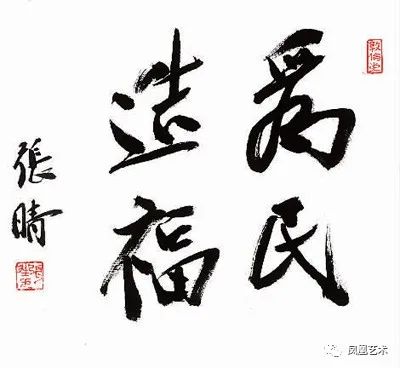 為民
造福
張晴
凤凰艺术